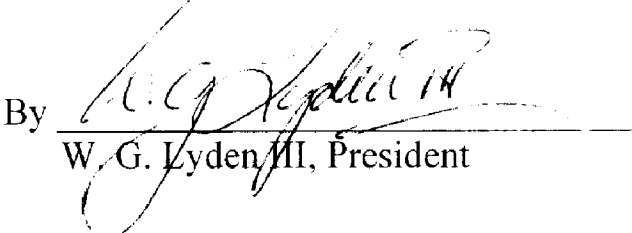 By W. G. Lyden III
W. G. Lyden III, President